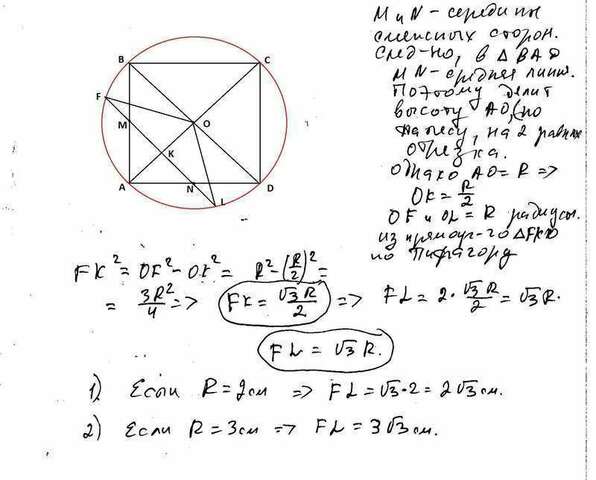 M и N - середины
смежных сторон.
След-но, в △ BAD
MN - средняя линия.
Поэтому делит
высоту AO, (по
Фалесу, на 2 равных
отрезка.
Однако AO = R =>
OK = R/2
OF и OL = R радиусы.
из прямоуг-го △FKO
по Пифагору
B
C
F
M
O
K
A
N
D
L
FK² = OF² - OK² = R² - (R/2)² =
= 3R²/4 => FK = √3 R/2 => FL = 2 · √3 R/2 = √3 R.
FL = √3 R.
1) Если R = 2см => FL = √3 · 2 = 2√3 см.
2) Если R = 3см => FL = 3√3 см.